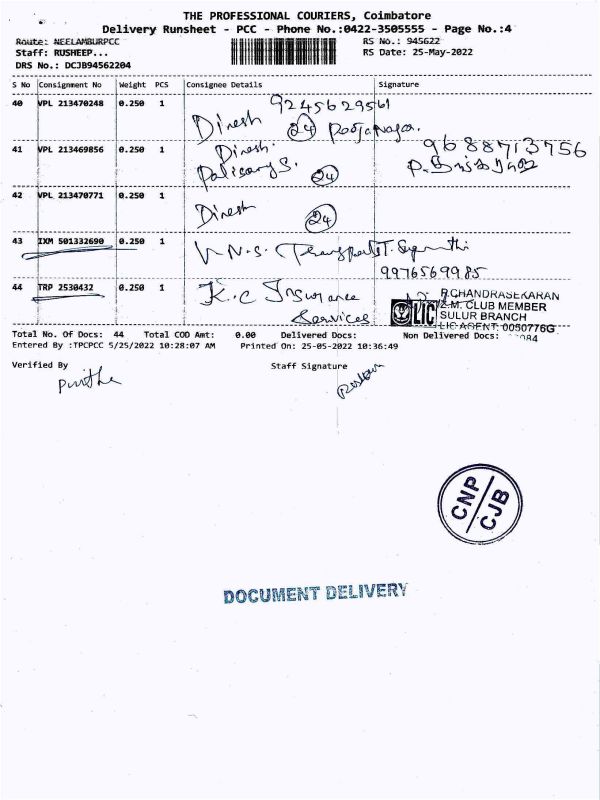 THE PROFESSIONAL COURIERS, Coimbatore
Delivery Runsheet - PCC - Phone No.:0422-3505555 - Page No.:4
Route: NEELAMBURPCC RS No.: 945622
Staff: RUSHEEP... RS Date: 25-May-2022
DRS No.: DCJB94562204
S No Consignment No Weight PCS Consignee Details Signature
40 VPL 213470248 0.250 1 Dinesh 9245629561
24
41 VPL 213469856 0.250 1 Dinesh. 9688713756
24
42 VPL 213470771 0.250 1 Dinesh 24
43 IXM 501332690 0.250 1 V.N.S. Transport
9976569985
44 TRP 2530432 0.250 1 K.C Insurance
Services
R.CHANDRASEKARAN
Z.M. CLUB MEMBER
LIC SULUR BRANCH
LIC AGENT: 0050776G
Total No. Of Docs: 44 Total COD Amt: 0.00 Delivered Docs: Non Delivered Docs:
Entered By :TPCPCC 5/25/2022 10:28:07 AM Printed On: 25-05-2022 10:36:49
Verified By Staff Signature
CNP/
CJB
DOCUMENT DELIVERY